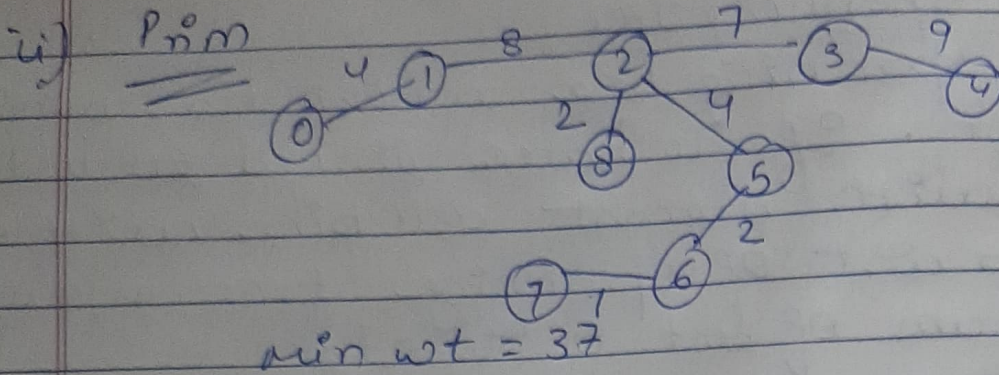 ii) Prim
7
8
9
4
1
2
3
4
0
2
4
8
5
2
7
6
1
min wt = 37